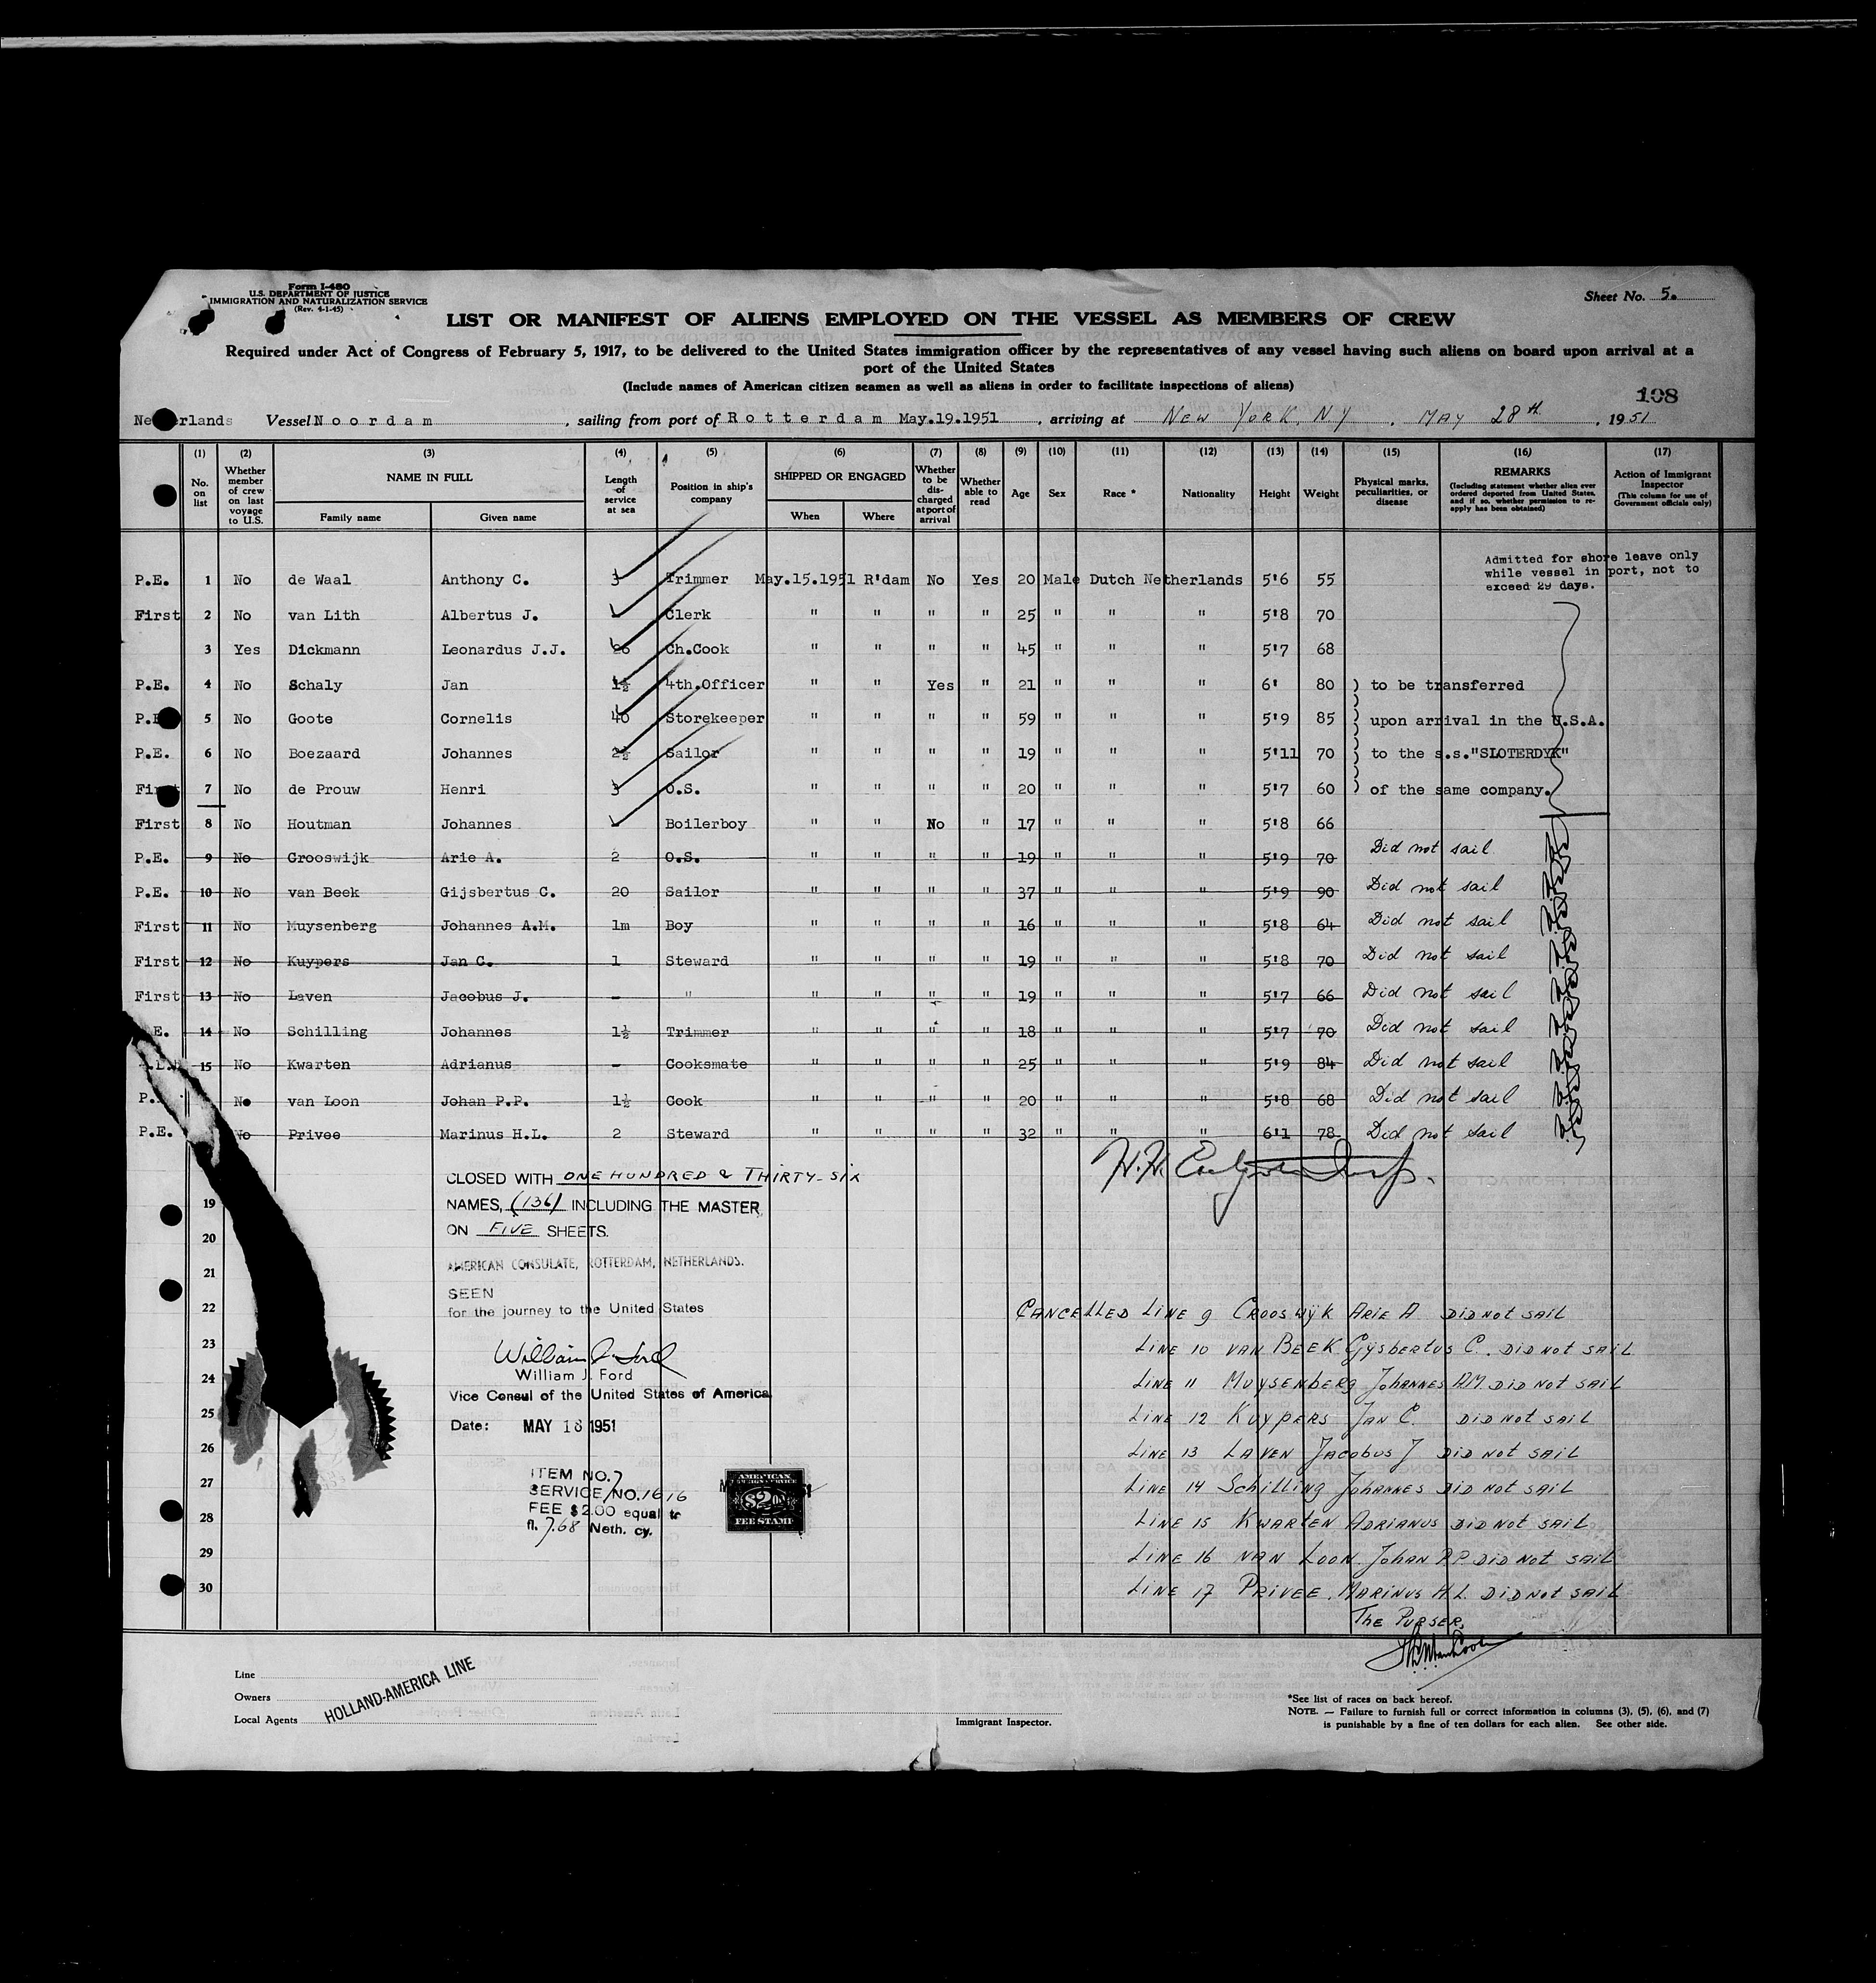 Form I-480
U.S. DEPARTMENT OF JUSTICE
IMMIGRATION AND NATURALIZATION SERVICE
(Rev. 4-1-45)
Sheet No. 5.
LIST OR MANIFEST OF ALIENS EMPLOYED ON THE VESSEL AS MEMBERS OF CREW
Required under Act of Congress of February 5, 1917, to be delivered to the United States immigration officer by the representatives of any vessel having such aliens on board upon arrival at a
port of the United States
(Include names of American citizen seamen as well as aliens in order to facilitate inspections of aliens)
108
Vessel Noordam, sailing from port of Rotterdam May.19.1951, arriving at NEW YORK, NY, MAY 28th, 1951
(1) (2) (3) (4) (5) (6) (7) (8) (9) (10) (11) (12) (13) (14) (15) (16) (17)
No. on list
Whether member of crew on last voyage to U.S.
NAME IN FULL
Family name Given name
Length of service at sea
Position in ship's company
SHIPPED OR ENGAGED
When Where
Whether to be discharged at port of arrival
Whether able to read
Age Sex Race * Nationality Height Weight
Physical marks, peculiarities, or disease
REMARKS
(Including statement whether alien ever ordered deported from United States, and if so, whether permission to reapply has been obtained)
Action of Immigrant Inspector
(This column for use of Government officials only)
Admitted for shore leave only
while vessel in port, not to
exceed 29 days.
P.E. 1 No de Waal Anthony C. 3 Trimmer May.15.1951 R'dam No Yes 20 Male Dutch Netherlands 5'6 55
First 2 No van Lith Albertus J. - Clerk " " " " 25 " " " 5'8 70
3 Yes Dickmann Leonardus J.J. 26 Ch.Cook " " " " 45 " " " 5'7 68
P.E. 4 No Schaly Jan 1½ 4th.Officer " " Yes " 21 " " " 6' 80 ) to be transferred
5 No Goote Cornelis 40 Storekeeper " " " " 59 " " " 5'9 85 ) upon arrival in the U.S.A.
P.E. 6 No Boezaard Johannes 2½ Sailor " " " " 19 " " " 5'11 70 ) to the s.s."SLOTERDYK"
7 No de Prouw Henri 3 O.S. " " " " 20 " " " 5'7 60 ) of the same company.
First 8 No Houtman Johannes - Boilerboy " " No " 17 " " " 5'8 66
P.E. 9 No Crooswijk Arie A. 2 O.S. " " " " 19 " " " 5'9 70 Did not sail
P.E. 10 No van Beek Gijsbertus C. 20 Sailor " " " " 37 " " " 5'9 90 Did not sail
First 11 No Muysenberg Johannes A.M. 1m Boy " " " " 16 " " " 5'8 64 Did not sail
First 12 No Kuypers Jan C. 1 Steward " " " " 19 " " " 5'8 70 Did not sail
First 13 No Laven Jacobus J. - " " " " " 19 " " " 5'7 66 Did not sail
14 No Schilling Johannes 1½ Trimmer " " " " 18 " " " 5'7 70 Did not sail
15 No Kwarten Adrianus - Cooksmate " " " " 25 " " " 5'9 84 Did not sail
No van Loon Johan P.P. 1½ Cook " " " " 20 " " " 5'8 68 Did not sail
P.E. No Privee Marinus H.L. 2 Steward " " " " 32 " " " 6'1 78 Did not sail
CLOSED WITH ONE HUNDRED & THIRTY-SIX
NAMES, (136) INCLUDING THE MASTER
ON FIVE SHEETS.
19
20
21
22
23
24
25
26
27
28
29
30
AMERICAN CONSULATE, ROTTERDAM, NETHERLANDS.
SEEN
for the journey to the United States
William J. Ford
William J. Ford
Vice Consul of the United States of America
Date: MAY 18 1951
ITEM NO. 7
SERVICE NO. 1616
FEE $2.00 equal to
fl. 7.68 Neth. cy.
AMERICAN
FOREIGN SERVICE
$2.00
FEE STAMP
CANCELLED LINE 9 CROOSWIJK ARIE A DID NOT SAIL
LINE 10 VAN BEEK GIJSBERTUS C. DID NOT SAIL
LINE 11 MUYSENBERG JOHANNES AM. DID NOT SAIL
LINE 12 KUYPERS JAN C. DID NOT SAIL
LINE 13 LAVEN JACOBUS J DID NOT SAIL
LINE 14 SCHILLING JOHANNES DID NOT SAIL
LINE 15 KWARTEN ADRIANUS DID NOT SAIL
LINE 16 VAN LOON JOHAN P.P. DID NOT SAIL
LINE 17 PRIVEE, MARINUS H.L. DID NOT SAIL
THE PURSER,
Line
Owners
Local Agents
HOLLAND-AMERICA LINE
Immigrant Inspector.
*See list of races on back hereof.
NOTE. — Failure to furnish full or correct information in columns (3), (5), (6), and (7)
is punishable by a fine of ten dollars for each alien. See other side.